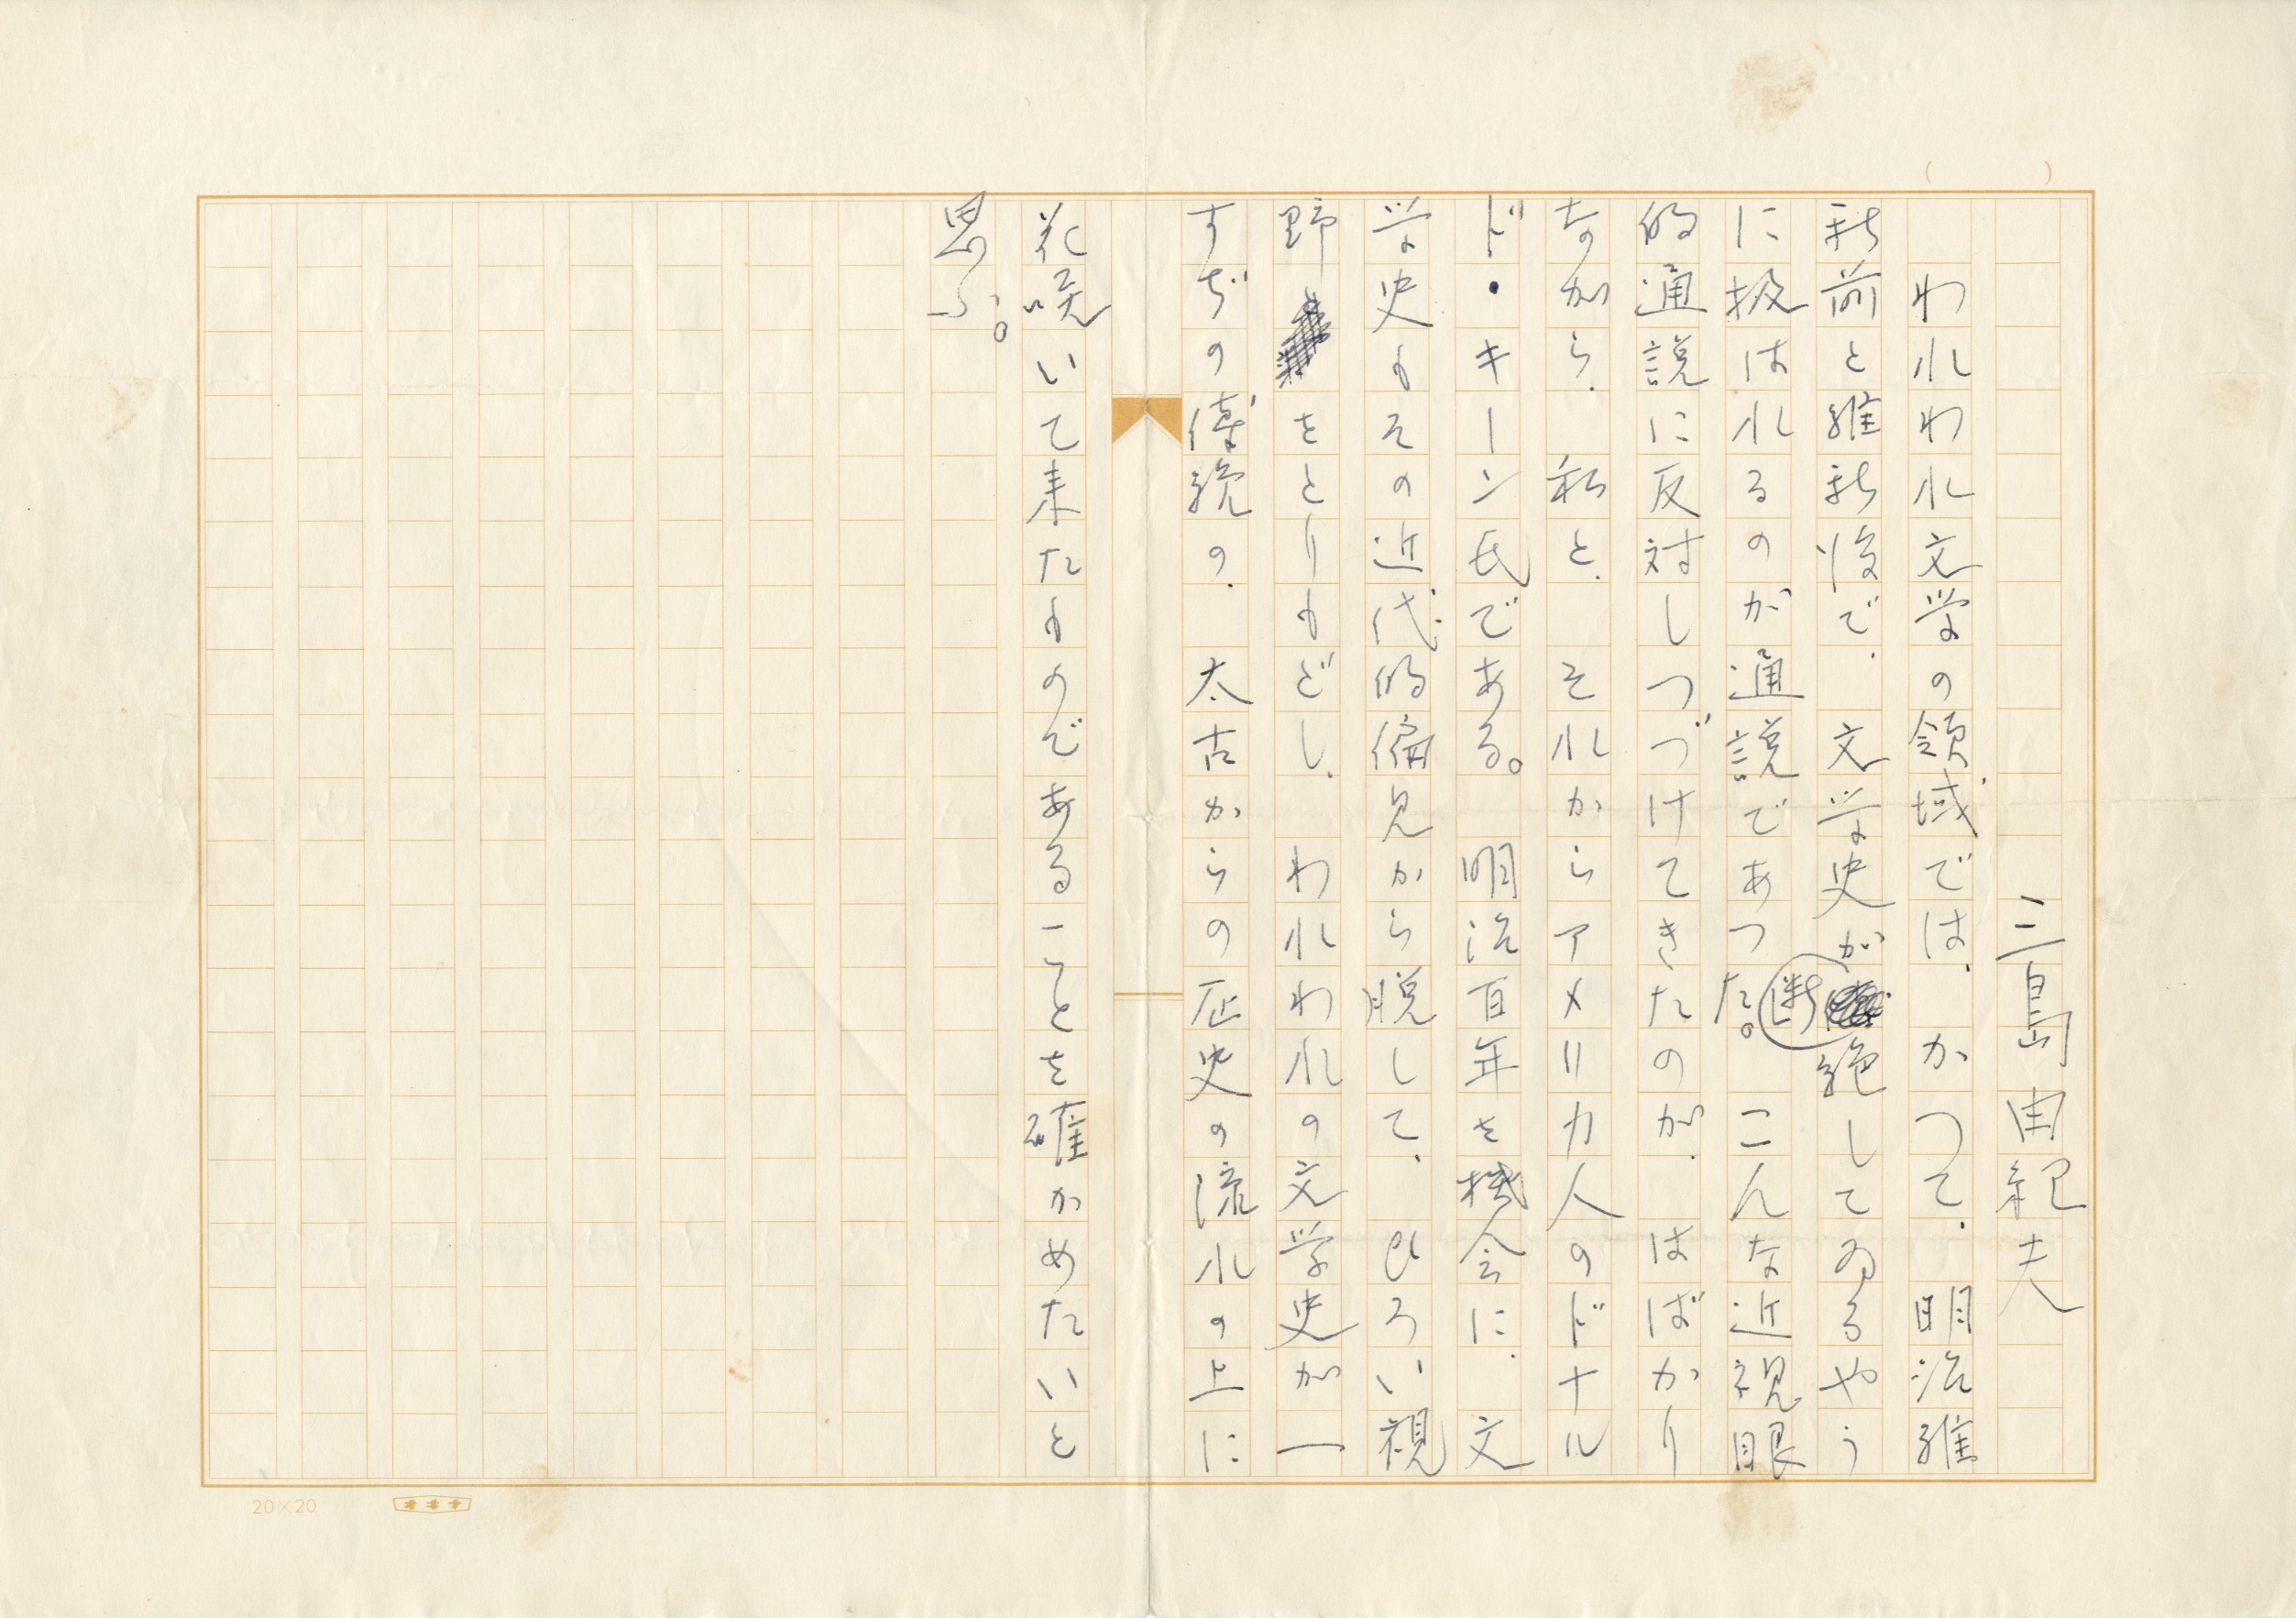 三島由紀夫
われわれ文学の領域では、かつて、明治維
新前と維新後で、文学史が断絶してゐるやう
に扱はれるのが通説であつた。こんな近視眼
的通説に反対しつづけてきたのが、はばかり
ながら、私と、それからアメリカ人のドナル
ド・キーン氏である。明治百年を機会に、文
学史もその近代的偏見から脱して、ひろい視
野をとりもどし、われわれの文学史が一
すぢの伝統の、太古からの歴史の流れの上に
花咲いて来たものであることを確かめたいと
思ふ。
20×20